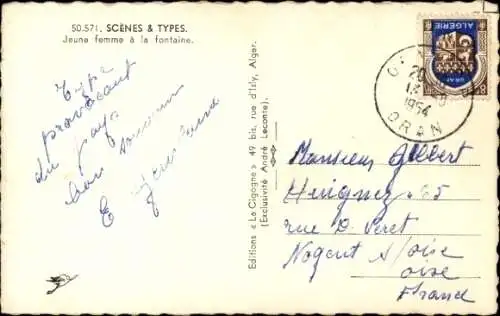 50.571. SCÈNES & TYPES.
Jeune femme à la fontaine.
Type
provocant
du pays
bon souvenir
E
Editions « La Cigogne » 49 bis, rue d'Isly, Alger.
(Exclusivité André Leconte).
ALGÉRIE
ORAN
20
1954
ORAN
Monsieur Gilbert
65
rue D. Veret
Nogent s/oise
oise
France